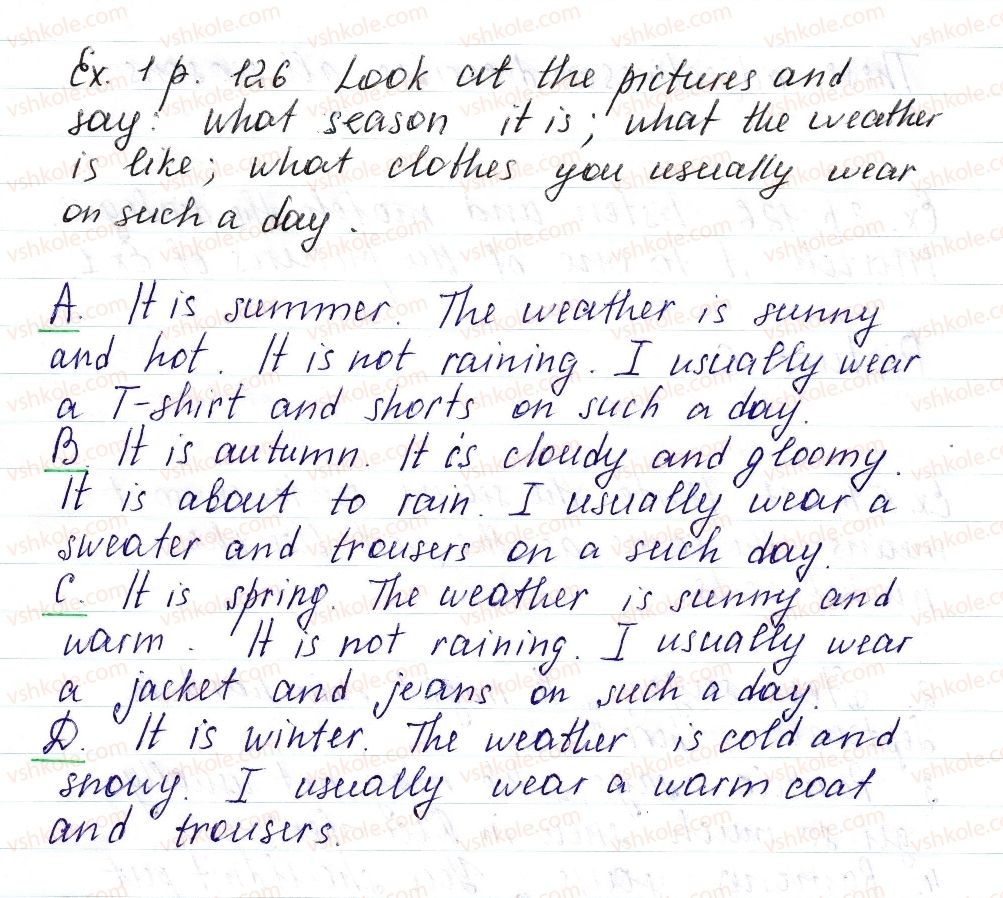 Ex. 1 p. 126 Look at the pictures and
say: what season it is; what the weather
is like; what clothes you usually wear
on such a day.
A. It is summer. The weather is sunny
and hot. It is not raining. I usually wear
a T-shirt and shorts on such a day.
B. It is autumn. It is cloudy and gloomy.
It is about to rain. I usually wear a
sweater and trousers on a such day.
C. It is spring. The weather is sunny and
warm. It is not raining. I usually wear
a jacket and jeans on such a day.
D. It is winter. The weather is cold and
snowy. I usually wear a warm coat
and trousers.